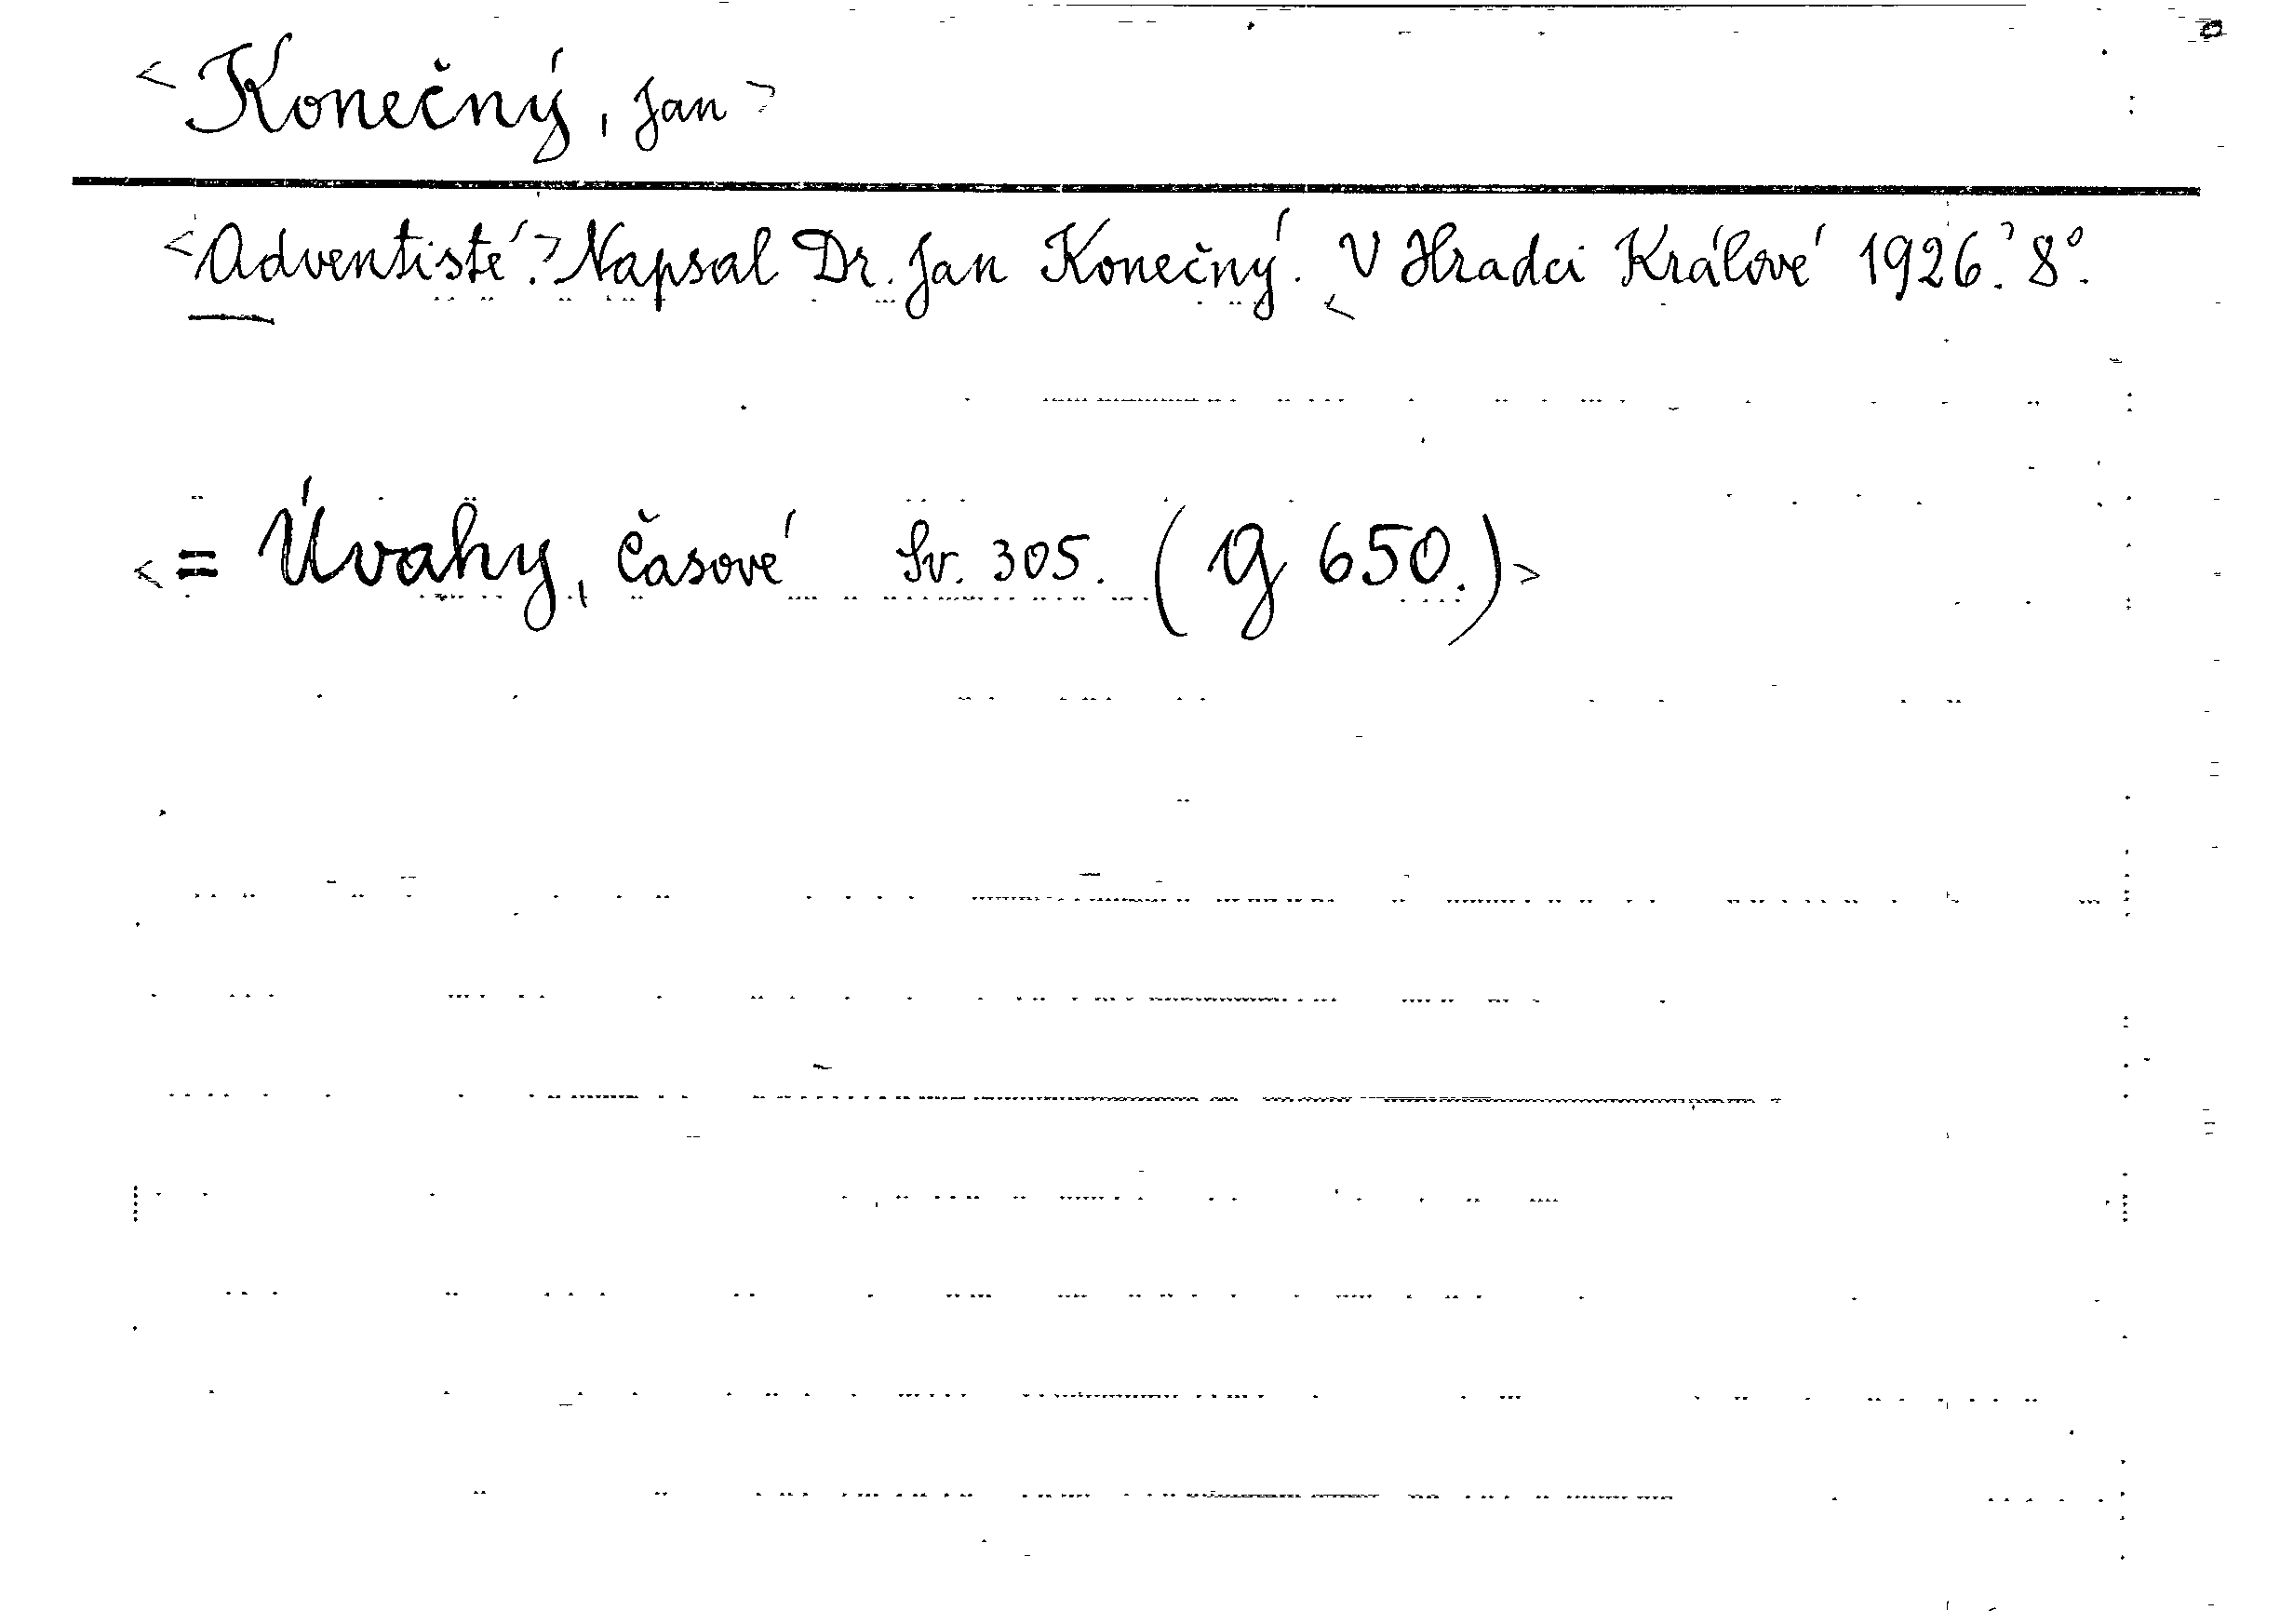 <Konečný, Jan>
<Adventisté.> Napsal Dr. Jan Konečný. <V Hradci Králové 1926.> 8°.
<= Úvahy, časové Sv. 305. (G 650.)>